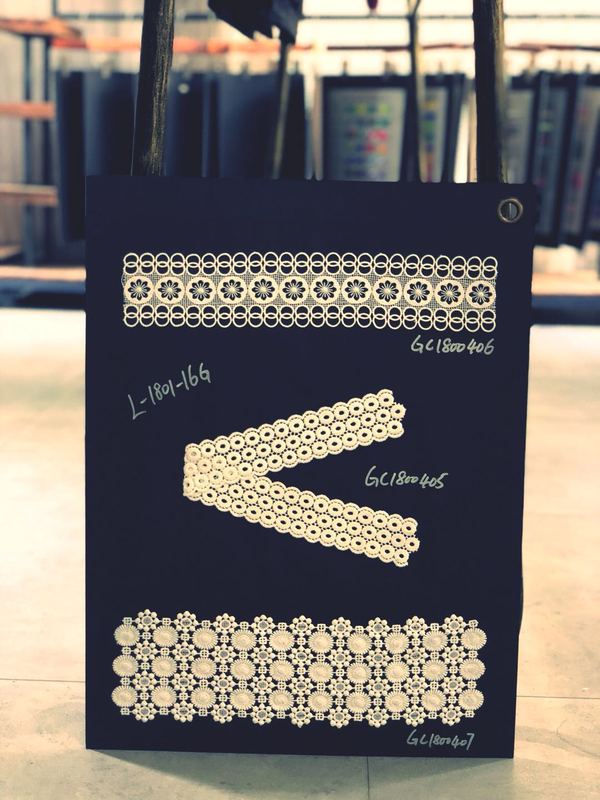 GC1800406
L-1801-16G
GC1800405
GC1800407